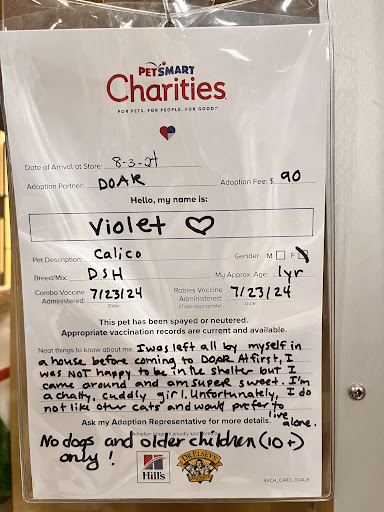 PETSMART
Charities
FOR PETS. FOR PEOPLE. FOR GOOD.™
Date of Arrival at Store: 8-3-24
Adoption Partner: DOAR Adoption Fee: $ 90
Hello, my name is:
Violet ♡
Pet Description: Calico Gender: M F
Breed/Mix: DSH My Approx. Age: 1yr
Combo Vaccine Administered: 7/23/24 Rabies Vaccine Administered: 7/23/24
(if age appropriate)
Date Date
This pet has been spayed or neutered.
Appropriate vaccination records are current and available.
Neat things to know about me: I was left all by myself in
a house before coming to DOAR At first, I
was NOT happy to be in the shelter but I
came around and am super sweet. I'm
a chatty, cuddly girl. Unfortunately, I do
not like other cats and would prefer to
live
alone.
Ask my Adoption Representative for more details.
No dogs and older children (10+)
only!
Hill's
DR. ELSEY'S